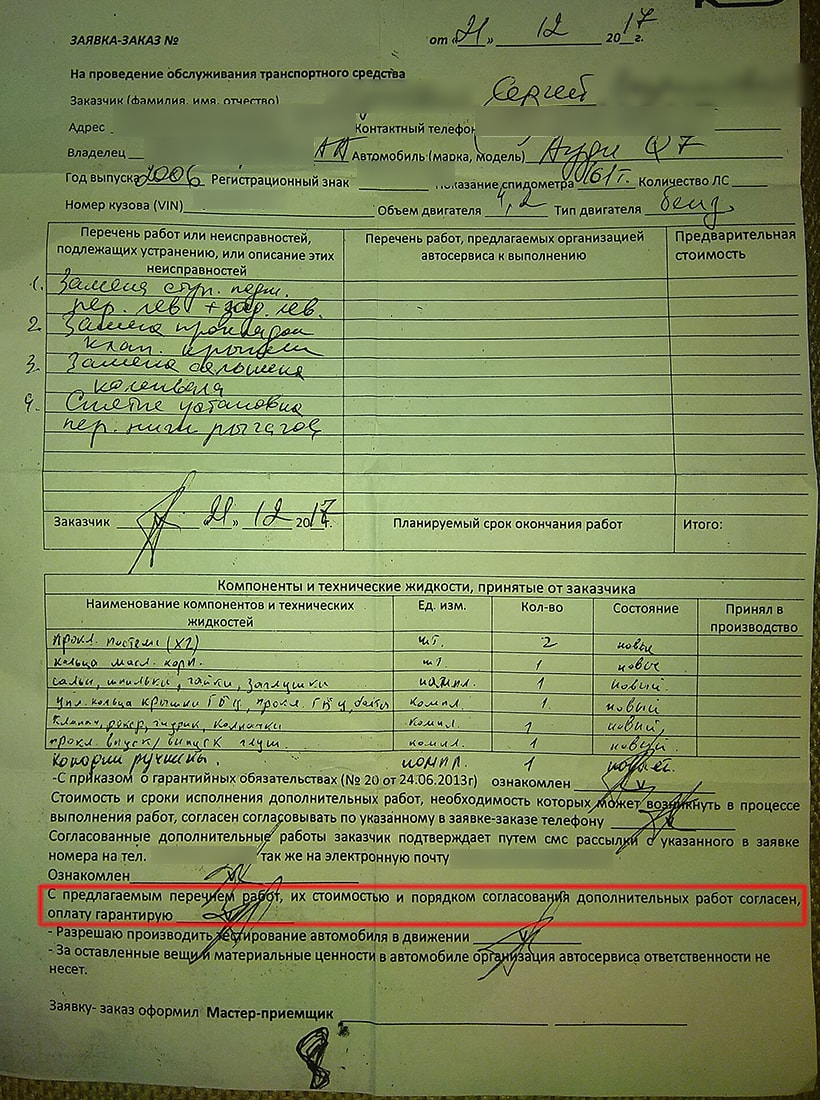 ЗАЯВКА-ЗАКАЗ № от «21» 12 2017г.
На проведение обслуживания транспортного средства
Заказчик (фамилия, имя, отчество) Сергей
Адрес Контактный телефон
Владелец Автомобиль (марка, модель) Ауди Q7
Год выпуска 2006 Регистрационный знак Показание спидометра 161т. Количество ЛС
Номер кузова (VIN) Объем двигателя 4,2 Тип двигателя бенз
Перечень работ или неисправностей, подлежащих устранению, или описание этих неисправностей
Перечень работ, предлагаемых организацией автосервиса к выполнению
Предварительная стоимость
1. Замена ступ. подш.
пер. лев + зад. лев.
2. Замена прокладок
клап. крышек
3. Замена сальника
коленвала
4. Снятие установка
пер. ниж рычагов
Заказчик «21» 12 2017г. Планируемый срок окончания работ Итого:
Компоненты и технические жидкости, принятые от заказчика
Наименование компонентов и технических жидкостей Ед. изм. Кол-во Состояние Принял в производство
прокл. постели (x2) шт. 2 новые
кольца масл. корп. шт 1 новое
шпильки, гайки, заглушки компл. 1 новый.
упл. кольца крышки ГБЦ, прокл. ГБЦ, болты компл. 1 новый
компл. 1 новый,
прокл. впуск/выпуск глуш. компл. 1 новый.
компл. 1 новый.
-С приказом о гарантийных обязательствах (№ 20 от 24.06.2013г) ознакомлен
Стоимость и сроки исполнения дополнительных работ, необходимость которых может возникнуть в процессе
выполнения работ, согласен согласовывать по указанному в заявке-заказе телефону
Согласованные дополнительные работы заказчик подтверждает путем смс рассылки с указанного в заявке
номера на тел. так же на электронную почту
Ознакомлен
С предлагаемым перечнем работ, их стоимостью и порядком согласования дополнительных работ согласен,
оплату гарантирую
- Разрешаю производить тестирование автомобиля в движении
- За оставленные вещи и материальные ценности в автомобиле организация автосервиса ответственности не
несет.
Заявку- заказ оформил Мастер-приемщик